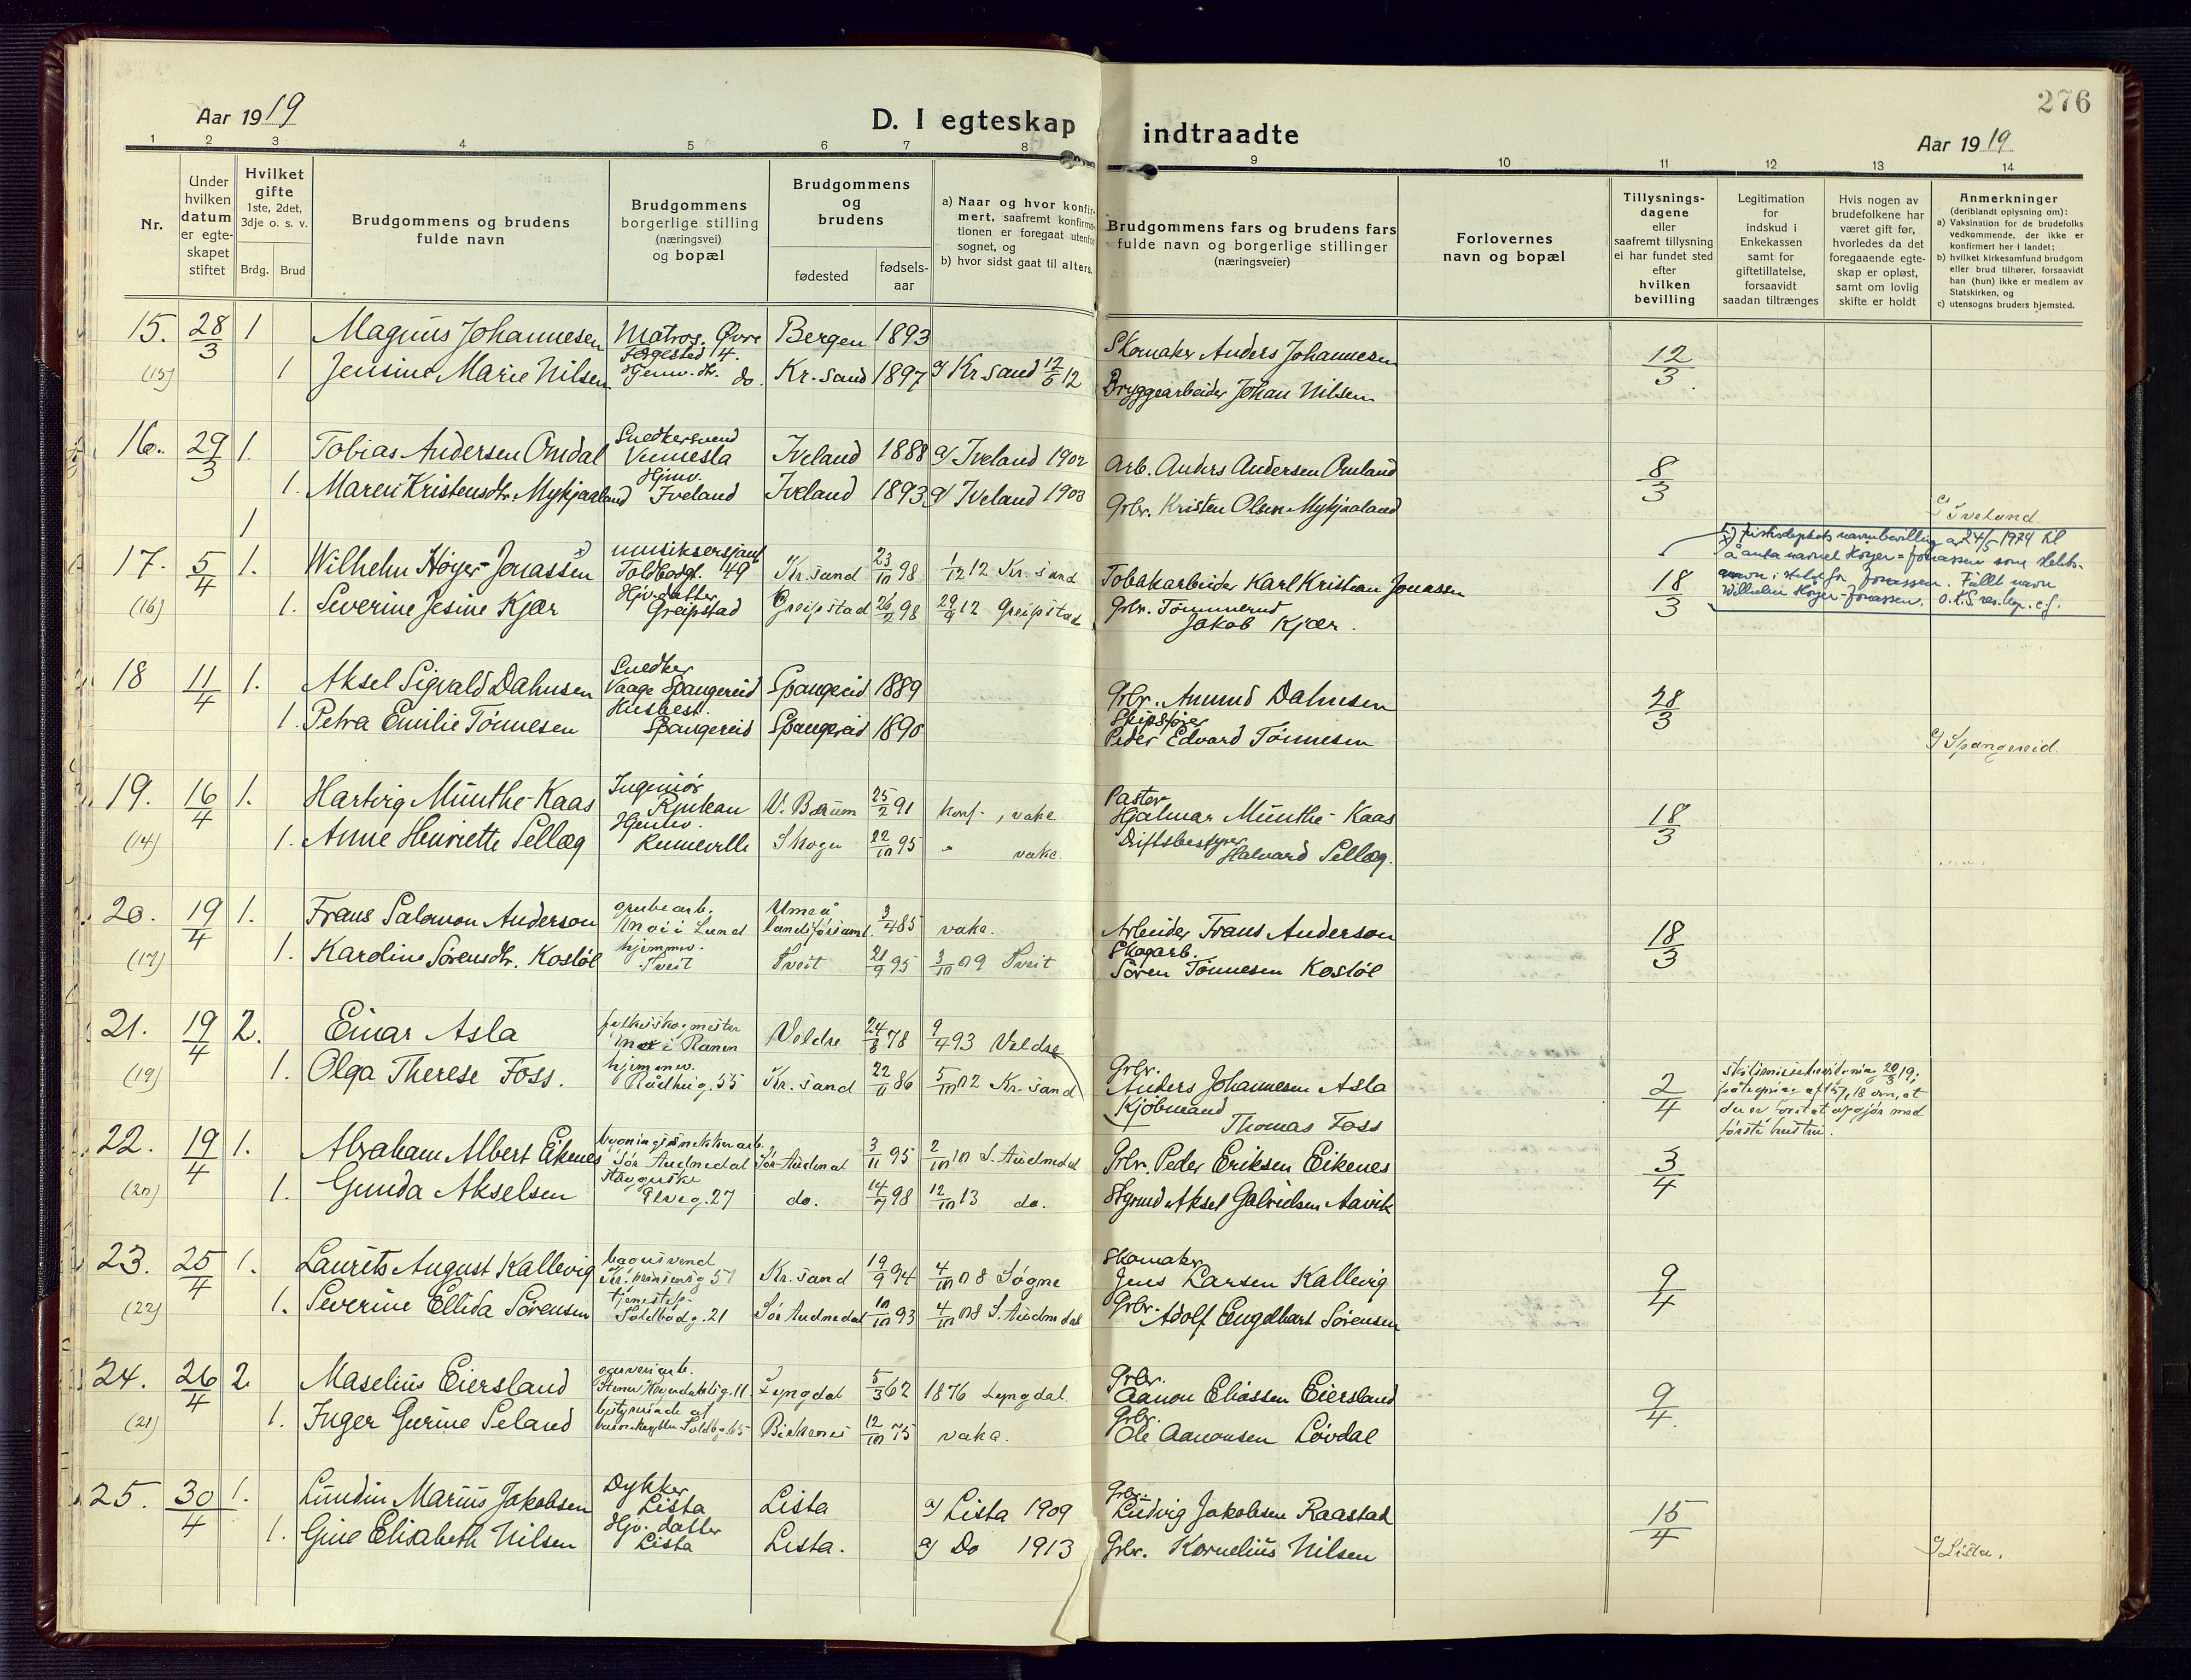 276
Aar 1919
D. I egteskap indtraadte
Aar 1919
1 2 3 4 5 6 7 8 9 10 11 12 13 14
Nr.
Under hvilken datum er egte-skapet stiftet
Hvilket gifte 1ste, 2det, 3dje o. s. v.
Brdg. Brud
Brudgommens og brudens fulde navn
Brudgommens borgerlige stilling (næringsvei) og bopæl
Brudgommens og brudens
fødested
fødsels-aar
a) Naar og hvor konfir-mert, saafremt konfirma-tionen er foregaat utenfor sognet, og
b) hvor sidst gaat til alters.
Brudgommens fars og brudens fars fulde navn og borgerlige stillinger (næringsveier)
Forlovernes navn og bopæl
Tillysnings-dagene eller saafremt tillysning ei har fundet sted efter hvilken bevilling
Legitimation for indskud i Enkekassen samt for giftetillatelse, forsaavidt saadan tiltrænges
Hvis nogen av brudefolkene har været gift før, hvorledes da det foregaaende egte-skap er opløst, samt om lovlig skifte er holdt
Anmerkninger (deriblandt oplysning om):
a) Vaksination for de brudefolks vedkommende, der ikke er konfirmert her i landet;
b) hvilket kirkesamfund brudgom eller brud tilhører, forsaavidt han (hun) ikke er medlem av Statskirken, og
c) utensogns bruders hjemsted.
15. 28/3 1 Magnus Johannesen Matros. Øvre Bergen 1893 Skomaker Anders Johannesen 12/3
(15) 1 Jensine Marie Nilsen do. Kr.sand 1897 a) Kr sand 12/5 12 Bryggearbeider Johan Nilsen
16. 29/3 1. Tobias Andersen Omdal Snedkersvend Vennesla Iveland 1888 a) Iveland 1902 Arb. Anders Andersen Omland 8/3
1. Maren Kristensdtr. Mykjaaland Hjmv. Iveland Iveland 1893 a) Iveland 1903 Grbr. Kristen Olsen Mykjaaland c) Iveland
1
17. 5/4 1. Wilhelm Høyer-Jonassen x) musiksersjant Toldbodgt. 49 Kr.sand 23/10 98 1/12 12 Kr.sand Tobakarbeider Karl Kristian Jonassen 18/3
x) navnebevilling av 24/5-1974 til å anta navnet Høyer-Jonassen som slekts-navn i st. f. Jonassen. Fullt navn Wilhelm Høyer-Jonassen.
(16) 1. Severine Jesine Kjær Hjv. datter Greipstad Greipstad 26/2 98 29/9 12 Greipstad Grbr. Tømmermd Jakob Kjær.
18 11/4 1. Aksel Sigvald Dahnsen Snedker Vaage Spangereid Spangereid 1889 Grbr. Anund Dahnsen 28/3
1. Petra Emilie Tønnesen Husbest. Spangereid Spangereid 1890 Skipsfører Peder Edvard Tønnesen c) Spangereid.
19. 16/4 1. Hartvig Münthe-Kaas Ingeniør Rjukan V. Bærum 25/2 91 konf., vake Pastor Hjalmar Münthe-Kaas 18/3
(14) 1. Anne Henriette Sellæg Hjemmv. Skoger 22/10 95 " vake. Driftsbestyrer Halvard Sellæg.
20. 19/4 1. Frans Salomon Anderson grubearb. Umeå landsförsaml. 3/4 85 vake. Arbeider Frans Anderson 18/3
(17) 1. Karoline Sørensdtr. Kostøl hjemmv. Tveit Tveit 21/9 95 3/10 09 Tveit Skogarb. Søren Tønnesen Kostøl
21. 19/4 2. Einar Asla fylkesskogmester Mo i Ranen Veldre 24/8 78 9/4 93 Veldre Grbr. Anders Johannesen Asla 2/4
(19) 1. Olga Therese Foss. hjemmv. Rådhusg. 55 Kr.sand 22/11 86 5/10 02 Kr.sand Kjøbmand Thomas Foss
første hustru.
22. 19/4 1. Abraham Albert Eikenes Sør Audnedal Sør-Audnedal 3/11 95 2/10 10 S. Audnedal Grbr. Peder Eriksen Eikenes 3/4
(20) 1. Gunda Akselsen Elveg. 27 do. 14/7 98 12/10 13 do. Aksel Gabrielsen Aavik
23. 25/4 1. Laurits August Kallevig bagersvend 51 Kr.sand 19/9 94 4/10 08 Søgne Skomaker Jens Larsen Kallevig 9/4
(22) 1. Severine Ellida Sørensen tjenestep. Toldbodg. 21 Sør Audnedal 10/10 93 4/10 08 S. Audnedal Grbr. Adolf Engelhart Sørensen
24. 26/4 2 Maselius Eiersland garveriarb. Lyngdal 5/3 62 1876 Lyngdal Grbr. Aanon Eliassen Eiersland 9/4
(21) 1. Inger Gurine Seland bestyrerinde af Toldbg. 65 Birkenes 12/10 75 vake. Grbr. Ole Aanonsen Løvdal
25. 30/4 1. Lundin Marius Jakobsen Dykker Lista Lista a) Lista 1909 Grbr. Ludvig Jakobsen Raastad 15/4
1. Gine Elisabeth Nilsen Hjv. datter Lista Lista. a) Do 1913 Grbr. Kornelius Nilsen c) Lista.